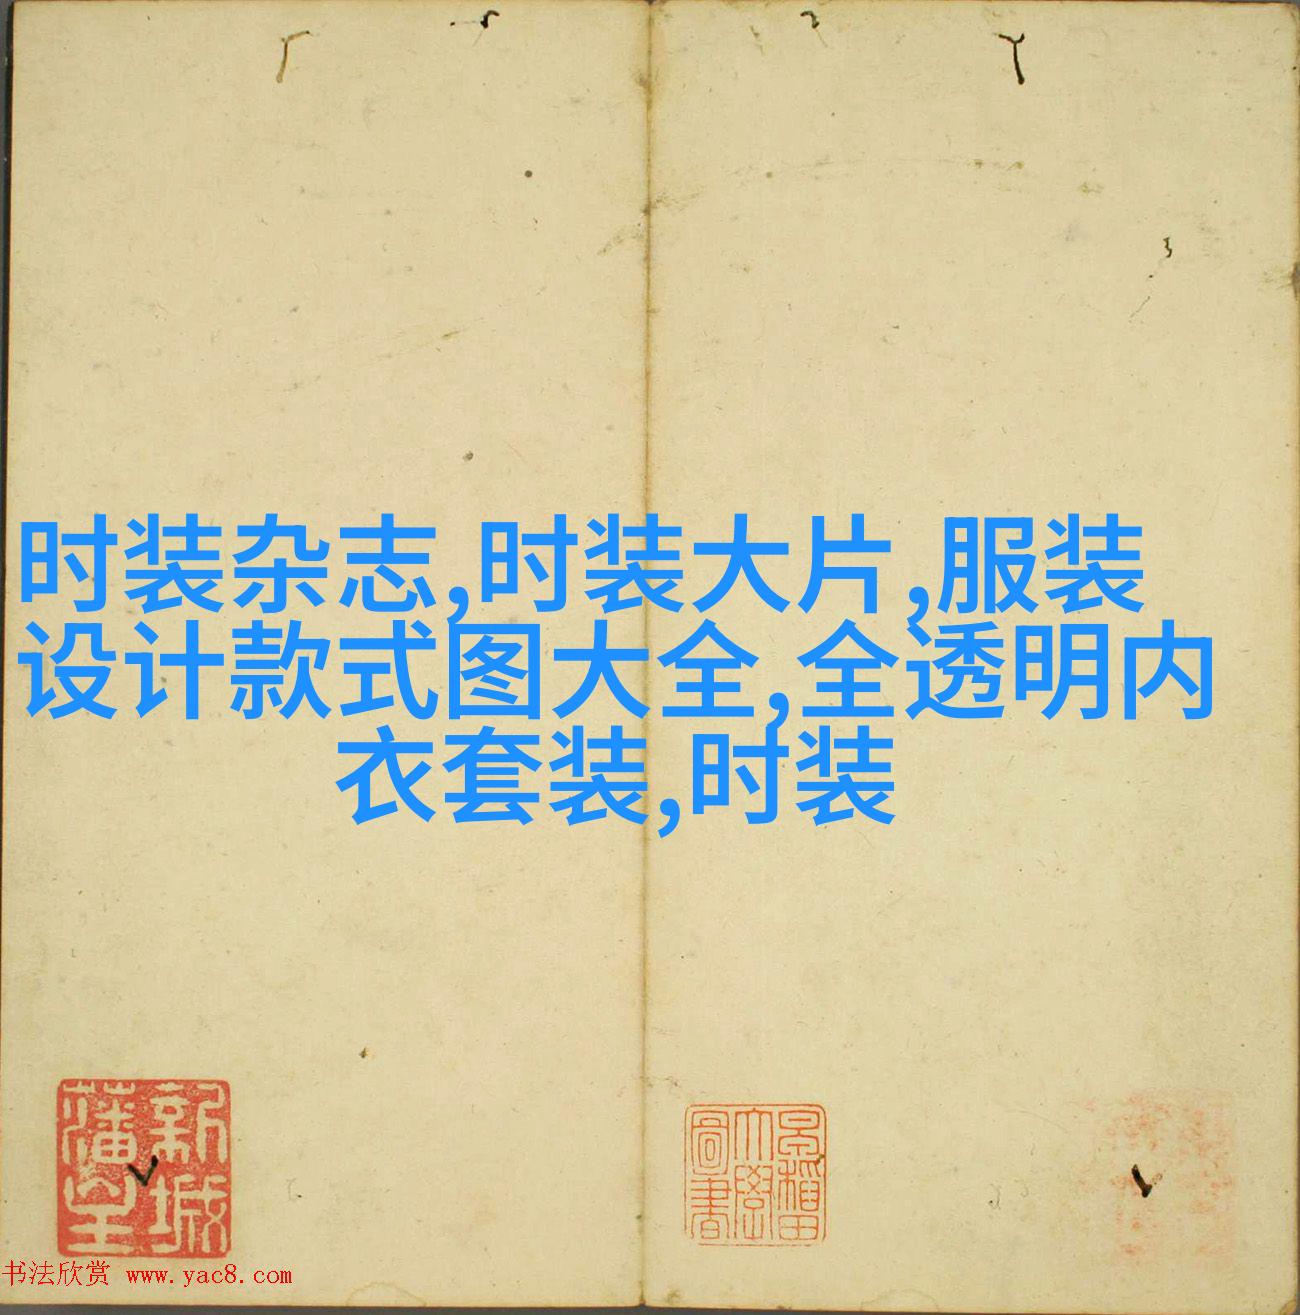 时装杂志,时装大片,服装
设计款式图大全,全透明内
衣套装,时装
新城
藩室
早稲田
大學
圖書
书法欣赏 www.yac8.com